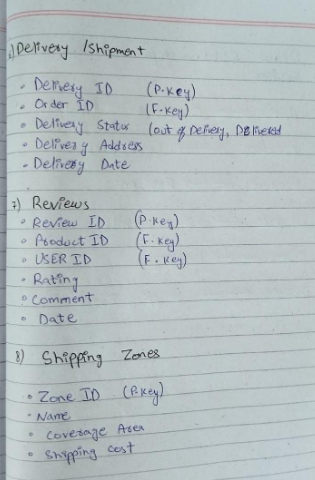 6) Delivery /Shipment
• Delivery ID (P.Key)
• Order ID (F.Key)
• Delivery Status (out of Delivery, Delivered
• Delivery Address
• Delivery Date
7) Reviews
• Review ID (P.Key)
• Product ID (F.Key)
• USER ID (F.Key)
• Rating
• Comment
• Date
8) Shipping Zones
• Zone ID (P.Key)
• Name
• Coverage Area
• Shipping Cost